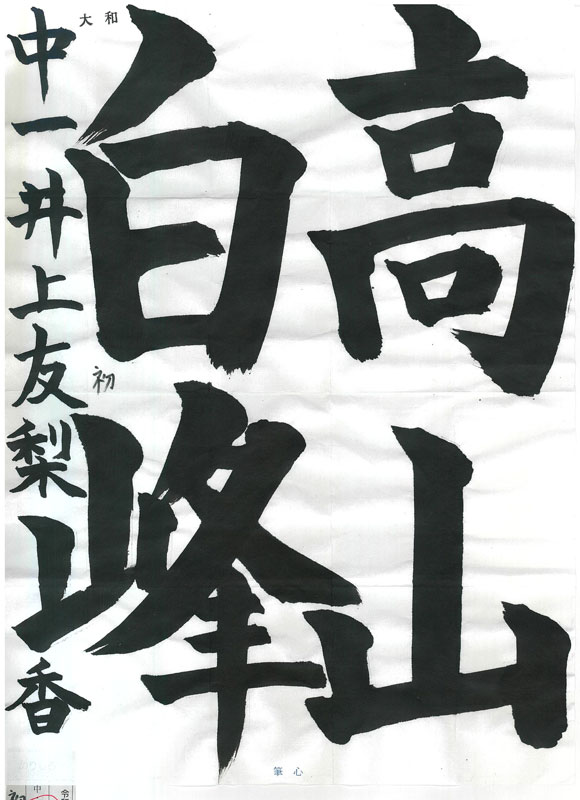 高山
白峰
中一 井上友梨香
大和
初
筆心
中